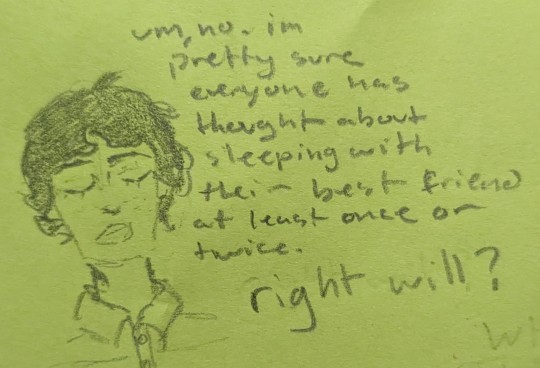 um, no. im
pretty sure
everyone has
thought about
sleeping with
their best friend
at least once or
twice.
right will?